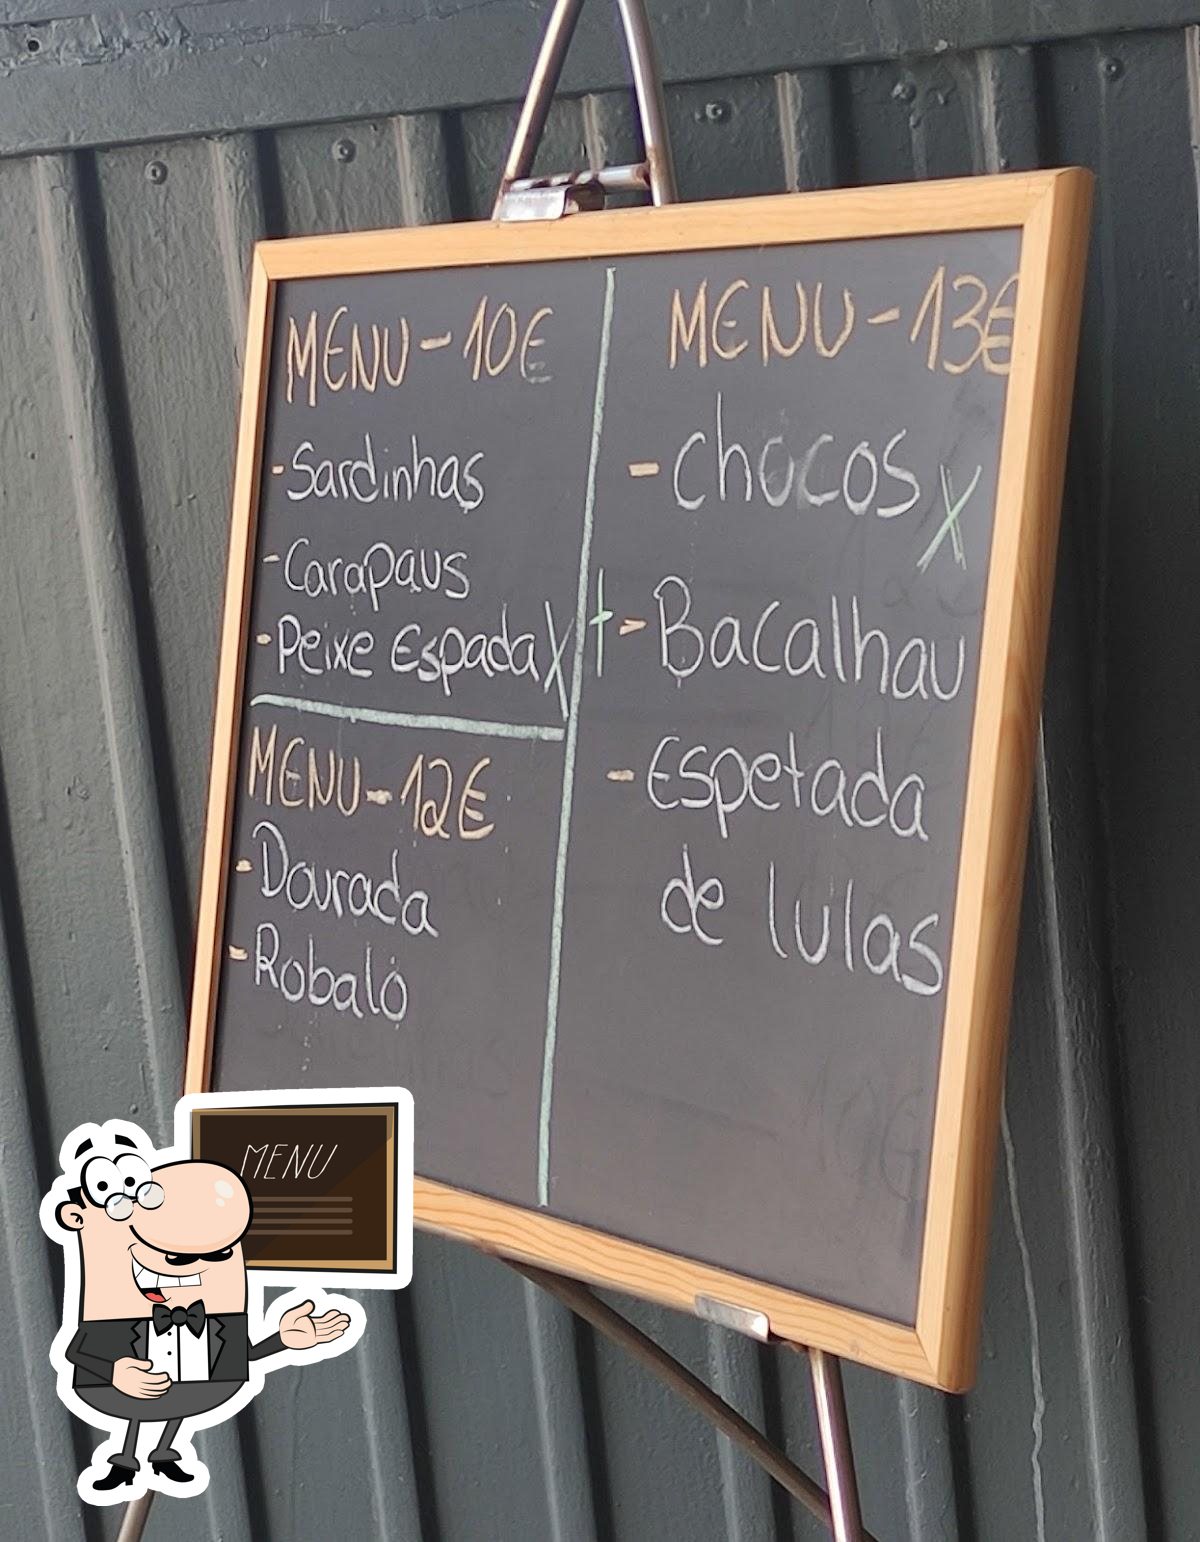 MENU-10€
-Sardinhas
-Carapaus
-Peixe Espada X
MENU-12€
-Dourada
-Robalo
MENU-13€
-Chocos X
t-Bacalhau
-Espetada
de lulas
MENU